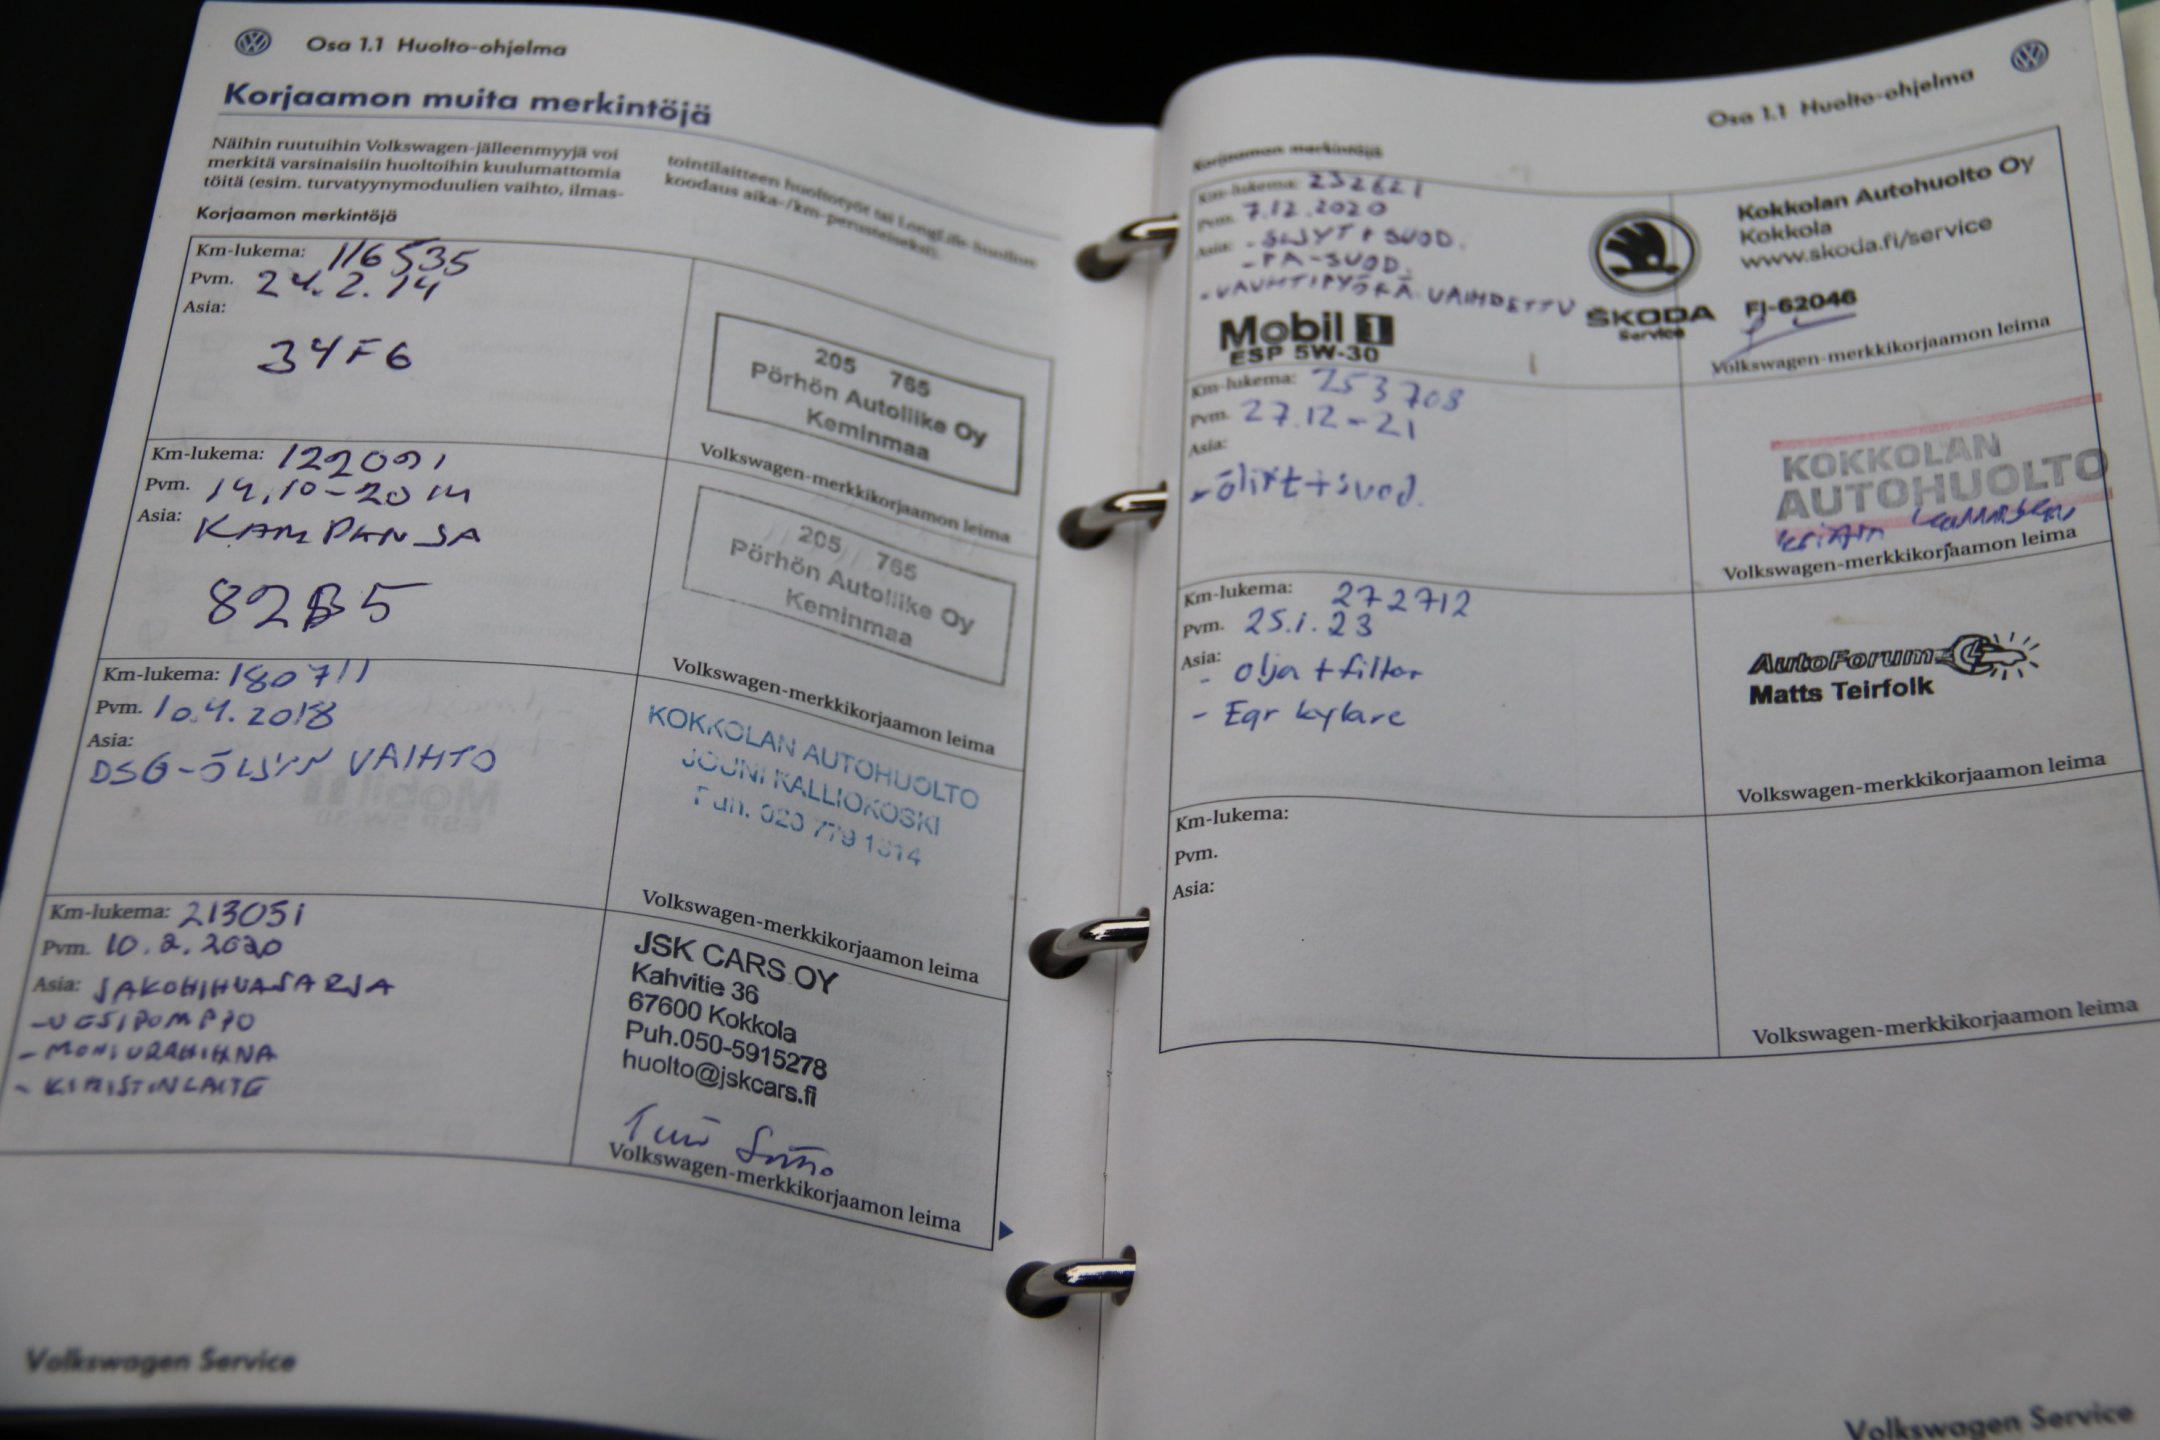 Osa 1.1 Huolto-ohjelma
Korjaamon muita merkintöjä
Näihin ruutuihin Volkswagen-jälleenmyyjä voi
merkitä varsinaisiin huoltoihin kuulumattomia
töitä (esim. turvatyynymoduulien vaihto, ilmas-
tointilaitteen huoltotyöt tai LongLife-huollon
koodaus aika-/km-perusteiseksi).
Korjaamon merkintöjä
Km-lukema: 116535
Pvm. 24.2.14
Asia:
34F6
205 765
Pörhön Autoliike Oy
Keminmaa
Volkswagen-merkkikorjaamon leima
Km-lukema: 122091
Pvm. 14.10-2014
Asia: KAMPANJA
82B5
205 765
Pörhön Autoliike Oy
Keminmaa
Volkswagen-merkkikorjaamon leima
Km-lukema: 180711
Pvm. 10.4.2018
Asia:
DSG-ÖLJYN VAIHTO
KOKKOLAN AUTOHUOLTO
JOUNI KALLIOKOSKI
Puh. 020 779 1314
Volkswagen-merkkikorjaamon leima
Km-lukema: 213051
Pvm. 10.2.2020
Asia: JAKOHIHNASARJA
-VESIPUMPPU
-MONIURAHIHNA
-KIRISTINLAITE
JSK CARS OY
Kahvitie 36
67600 Kokkola
Puh.050-5915278
huolto@jskcars.fi
Volkswagen-merkkikorjaamon leima
Volkswagen Service
Osa 1.1 Huolto-ohjelma
Korjaamon merkintöjä
Km-lukema: 232621
Pvm. 7.12.2020
Asia: -ÖLJYT + SUOD.
-PA-SUOD.
-VAUHTIPYÖRÄ VAIHDETTU
Mobil 1
ESP 5W-30
ŠKODA
Service
Kokkolan Autohuolto Oy
Kokkola
www.skoda.fi/service
FJ-62046
Volkswagen-merkkikorjaamon leima
Km-lukema: 253708
Pvm. 27.12-21
Asia:
-öljyt+suod.
KOKKOLAN
AUTOHUOLTO
Volkswagen-merkkikorjaamon leima
Km-lukema: 272712
Pvm. 25.1.23
Asia:
- olja + filter
- Egr kylare
AutoForum
Matts Teirfolk
Volkswagen-merkkikorjaamon leima
Km-lukema:
Pvm.
Asia:
Volkswagen-merkkikorjaamon leima
Volkswagen Service